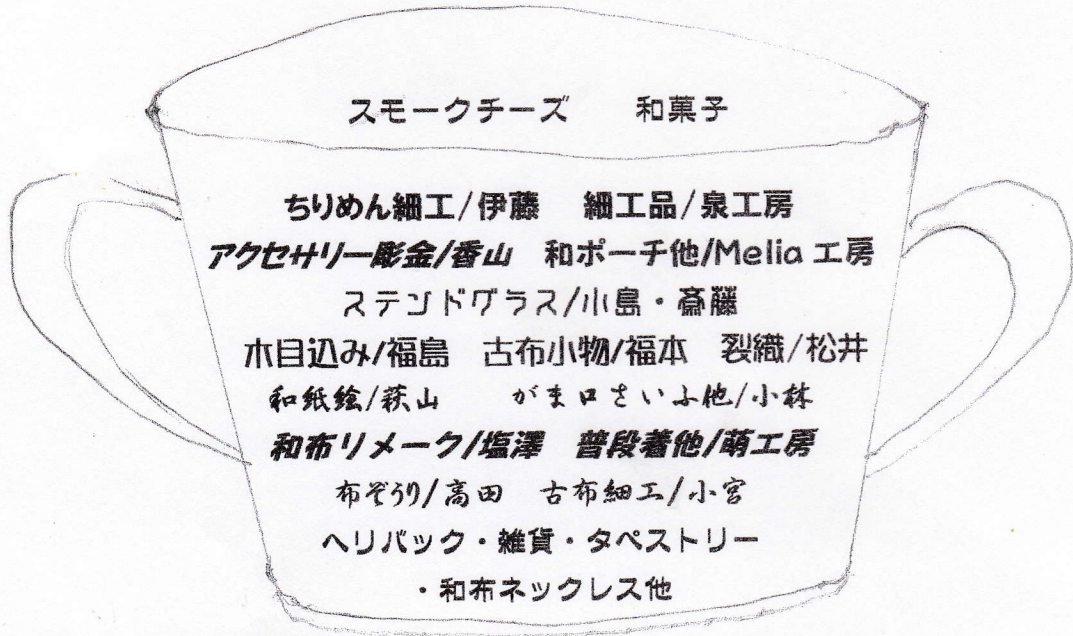 スモークチーズ　　和菓子
ちりめん細工/伊藤　細工品/泉工房
アクセサリー彫金/香山　和ポーチ他/Melia工房
ステンドグラス/小島・斎藤
木目込み/福島　古布小物/福本　裂織/松井
和紙絵/萩山　　がま口さいふ他/小林
和布リメーク/塩澤　普段着他/萌工房
布ぞうり/高田　古布細工/小宮
ヘリバック・雑貨・タペストリー
・和布ネックレス他